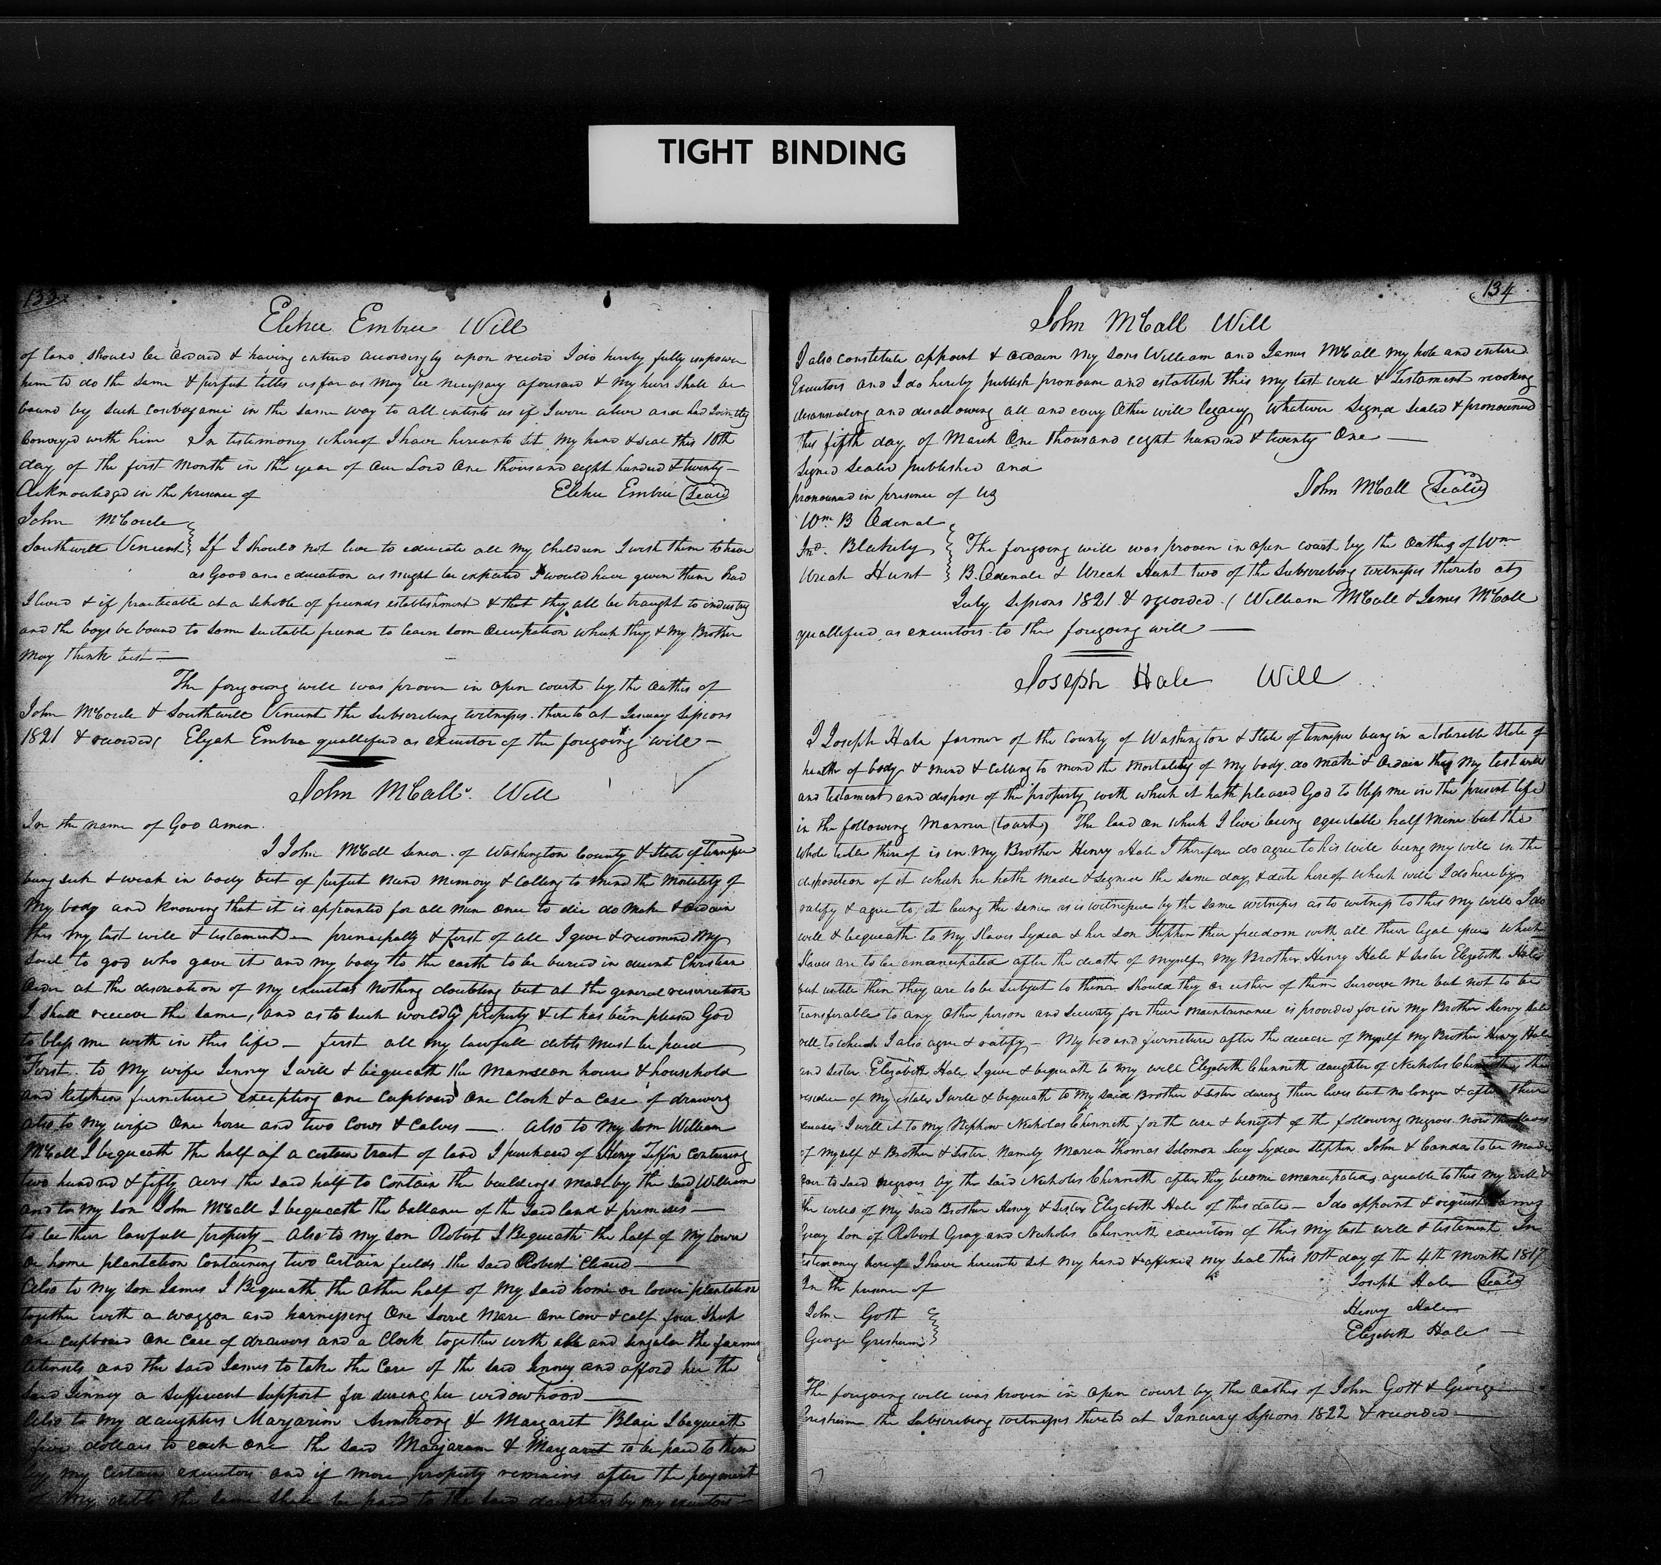 TIGHT BINDING
133
Elihu Embree Will
of land should be and having entered accordingly upon record I do hereby fully empower
him to do the same & perfect titles as far as may be necessary aforesaid & my heirs shall be
bound by such conveyance in the same way to all intents as if I were alive and had jointly
Conveyed with him In testimony whereof I have hereunto set my hand & seal this 10th
day of the first month in the year of our Lord one thousand eight hundred & twenty —
Acknowledged in the presence of Elihu Embree (Seal)
John McCorcle
Southwill Vincent If I should not live to educate all my children I wish them to have
as good an education as might be expected I would have given them had
I lived & if practicable at a schoole of friends establishment & that they all be braught to industry
and the boys be bound to some suitable friend to learn som occupation which they & my Brother
may think best —
The forgoing will was proven in open court by the oathes of
John McCorcle & Southwill Vincent the subscribing witnesses thereto at January Sessions
1821 & recorded Elijah Embree quallified as executor of the forgoing will —
John McCall Will
In the name of God amen
I John McCall senior of Washington County & State of Tennessee
being sick & weak in body but of perfect mind memory & Calling to mind the mortality of
my body and knowing that it is appointed for all men once to die do make & ordain
this my last will & testament — principally & first of all I give & recomend my
soul to god who gave it and my body to the earth to be buried in decent Christian
order at the discreation of my executors nothing doubting but at the general resurrection
I shall receive the same, and as to such worldly property & it has been pleased God
to bless me with in this life — first all my lawfull debts must be paid
First to my wife Jenny I will & bequeath the mansion house & household
and kitchen furniture excepting one Cupboard one Clock & a case of drawers
also to my wife One horse and two Cows & calves — Also to my son William
McCall I bequeath the half of a certain tract of land I purchased of Henry containing
two hundred & fifty acres the said half to contain the buildings made by the said William
and to my son John McCall I bequeath the ballance of the said land & premises —
to be their lawfull property — Also to my son Robert I Bequeath the half of my lower
or home plantation containing two certain fields the said Robert Cleared —
Also to my son James I Bequeath the other half of my said home or lower plantation
together with a waggon and harnessing one sorrel mare one cow & calf four sheep
one cupboard one case of drawers and a clock together with all and singular the farming
utensils and the said James to take the care of the said Jenney and afford her the
said Jenney a sufficient support for during her widowhood —
Also to my daughters Marjarim Armstrong & Margaret Blair I bequeath
five dollars to each one the said Marjaram & Margaret to be paid to them
by my certain executors and if more property remains after the payment
of my debts the same shall be paid to the said daughters by my executors —
134
John McCall Will
I also constitute appoint & ordain my sons William and James McCall my hole and entire
Executors and I do hereby publish pronounce and establish this my last will & Testament revoking
disannuling and disallowing all and every other will legacy whatever signed sealed & pronounced
this fifth day of March One thousand eight hundred & twenty One —
Signed sealed published and
pronounced in presence of us John McCall (Sealed)
Wm B Odenal
Jno. Blakely The forgoing will was proven in open court by the oathes of Wm
Wreah Hunt B. Odenale & Wreah Hunt two of the subscribing witnesses thereto at
July Sessions 1821 & recorded. William McCall & James McCall
quallified as executors to the forgoing will —
Joseph Hale Will
I Joseph Hale farmer of the County of Washington & State of Tennessee being in a tolerable state of
health of body & mind & Calling to mind the mortality of my body do make & ordain this my last will
and testament and dispose of the property with which it hath pleased God to bless me in the present life
in the following manner (to wit) The land on which I live being equitable half mine but the
whole title thereof is in my Brother Henry Hale I therefore do agree to his will being my will in the
disposition of it which he hath made & signed the same day & date hereof which will I do hereby
ratify & agree to it being the same as is witnessed by the same witnesses as to witness to this my will I do
will & bequeath to my Slaves Lydia & her son Stephen their freedom with all their which
slaves are to be emancipated after the death of myself my Brother Henry Hale & Sister Elizebeth Hale
but untill then they are to be subject to them should they or either of them survive me but not to be
transferable to any other person and security for their maintainance is provided for in my Brother Henry Hale
will to which I also agree & ratify — My bed and furniture after the decease of myself my Brother Henry Hale
and sister Elizabeth Hale I give & bequeath to my well Elizabeth Chinneth daughter of Nicholas Chinneth the
residue of my estate I will & bequeath to my said Brother & sister during their lives but no longer & after their
deceases I will it to my Nephew Nicholas Chinneth for the use & benefit of the following negroes now the slaves
of myself & Brother & Sister Namely Maria Thomas Solomon Lucy Lydia Stephen John & Canda to be made
over to said negroes by the said Nicholas Chinneth after they become emancipated agreeable to this my will &
the wills of my said Brother Henry & Sister Elizabeth Hale of this date — I do appoint & request James
Gray son of Robert Gray and Nicholas Chinneth executors of this my last will & testament In
testimony hereof I have hereunto set my hand & affixed my seal this 10th day of the 4th month 1817
In the presence of Joseph Hale (Seal)
John Gott Henry Hale
George Gresham Elizebeth Hale —
The forgoing will was proven in open court by the oathes of John Gott & George
Gresham the subscribing witnesses thereto at January Sessions 1822 & recorded —